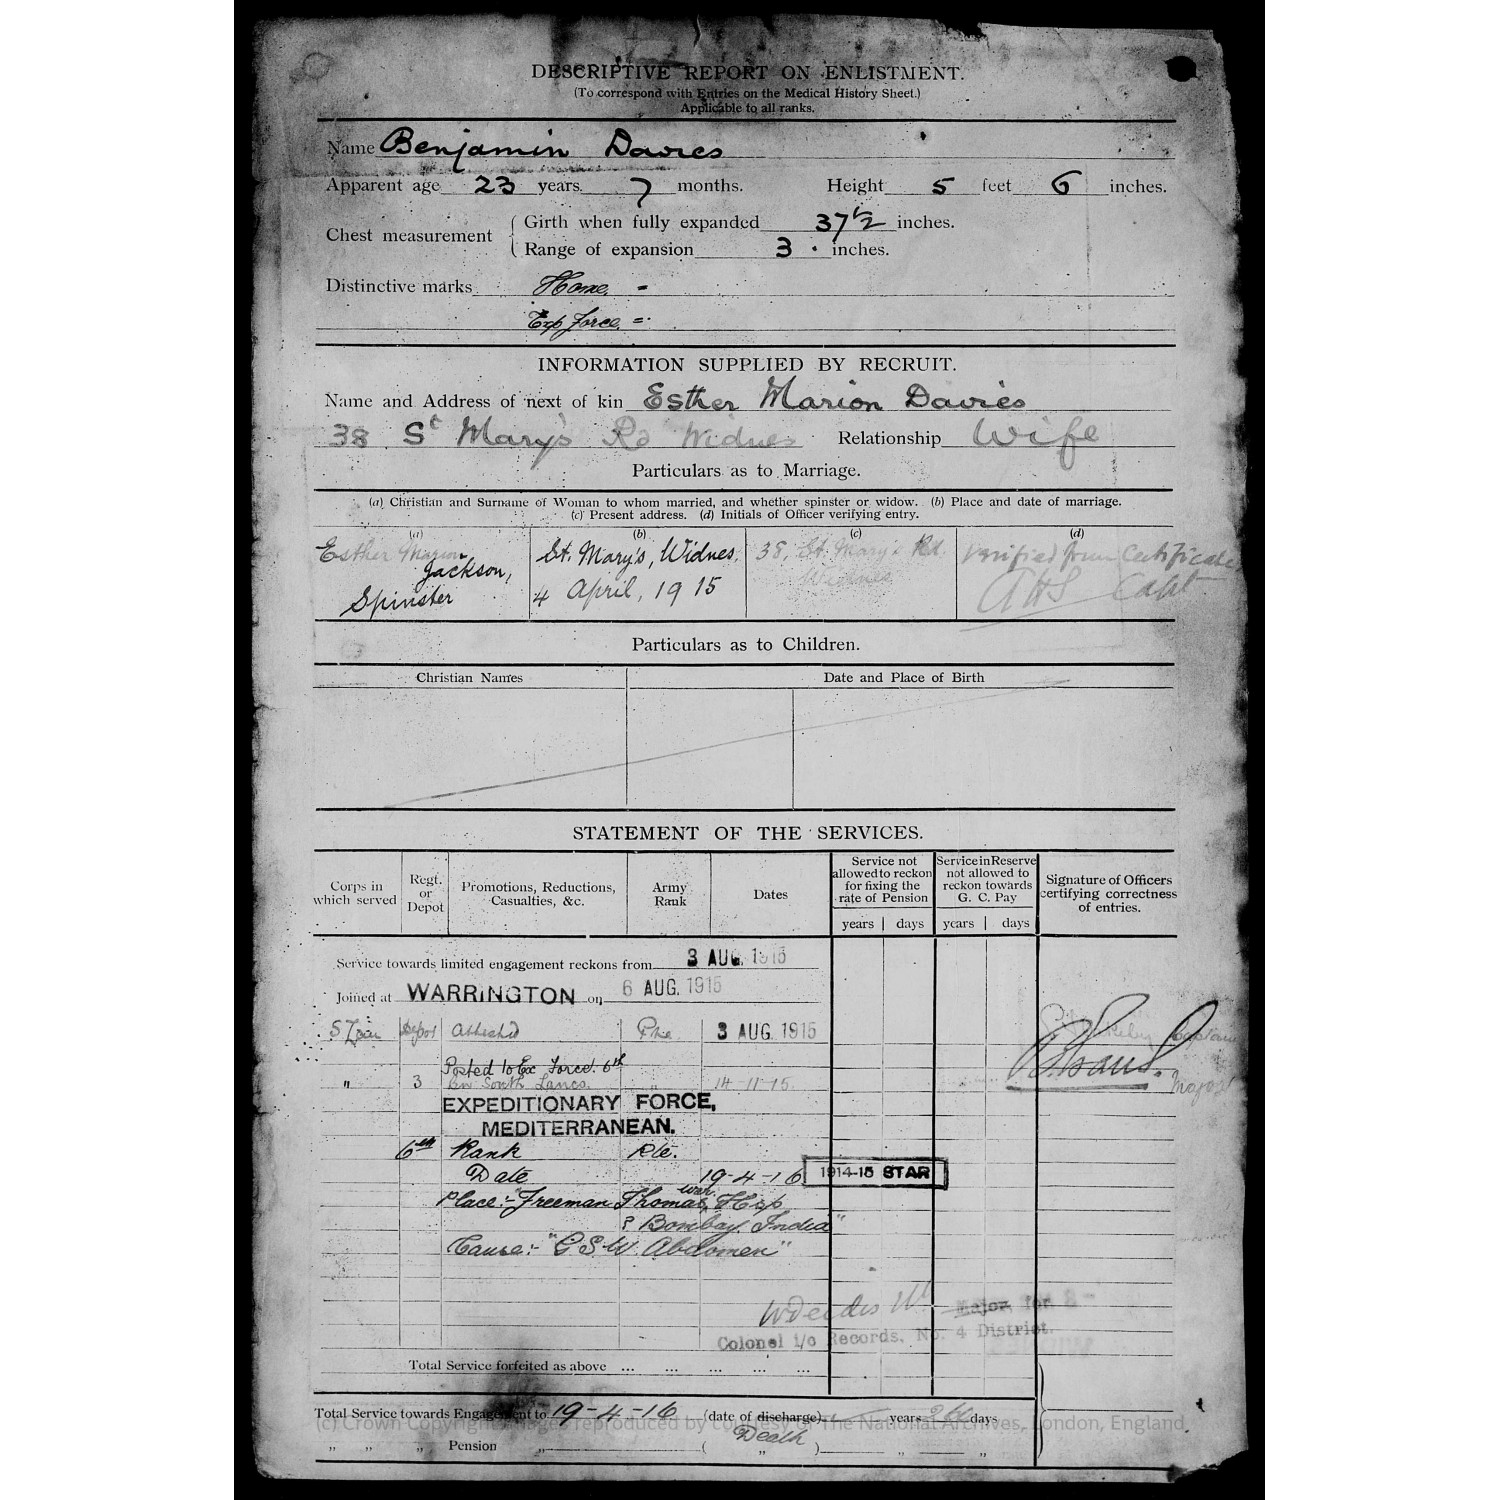 DESCRIPTIVE REPORT ON ENLISTMENT.
(To correspond with Entries on the Medical History Sheet.)
Applicable to all ranks.
Name Benjamin Davies
Apparent age 23 years 7 months. Height 5 feet 6 inches.
Chest measurement { Girth when fully expanded 37 1/2 inches.
Range of expansion 3 . inches.
Distinctive marks Home. =
Exp force. =
INFORMATION SUPPLIED BY RECRUIT.
Name and Address of next of kin Esther Marion Davies
38 St Mary's Rd Widnes Relationship Wife
Particulars as to Marriage.
(a) Christian and Surname of Woman to whom married, and whether spinster or widow. (b) Place and date of marriage.
(c) Present address. (d) Initials of Officer verifying entry.
(a) (b) (c) (d)
Esther Marion St. Mary's, Widnes, 38, St. Mary's Rd. Verified from Certificate
Jackson, Widnes
Spinster 4 April, 1915 Capt
Particulars as to Children.
Christian Names Date and Place of Birth
STATEMENT OF THE SERVICES.
Corps in which served Regt. or Depot Promotions, Reductions, Casualties, &c. Army Rank Dates Service not allowed to reckon for fixing the rate of Pension Service in Reserve not allowed to reckon towards G. C. Pay Signature of Officers certifying correctness of entries.
years days years days
Service towards limited engagement reckons from 3 AUG. 1915
Joined at WARRINGTON on 6 AUG. 1915
S Lan Depot Attested Pte 3 AUG. 1915 Captain
Posted to Ex Force. 6th
" 3 Bn South Lancs. " 14-11-15 Major
EXPEDITIONARY FORCE,
MEDITERRANEAN.
6th Rank Pte.
Date 19-4-16 1914-15 STAR
Place:- "Freeman Thomas War Hosp
Bombay. India"
Cause:- "G.S.W. Abdomen"
Major, for
Colonel i/c Records, No. 4 District.
Total Service forfeited as above ... ... ... ... ...
Total Service towards Engagement to 19-4-16 (date of discharge) years days
Death
(c) Crown Copyright Images reproduced by courtesy of The National Archives, London, England.
" " " Pension " ( " ) " "